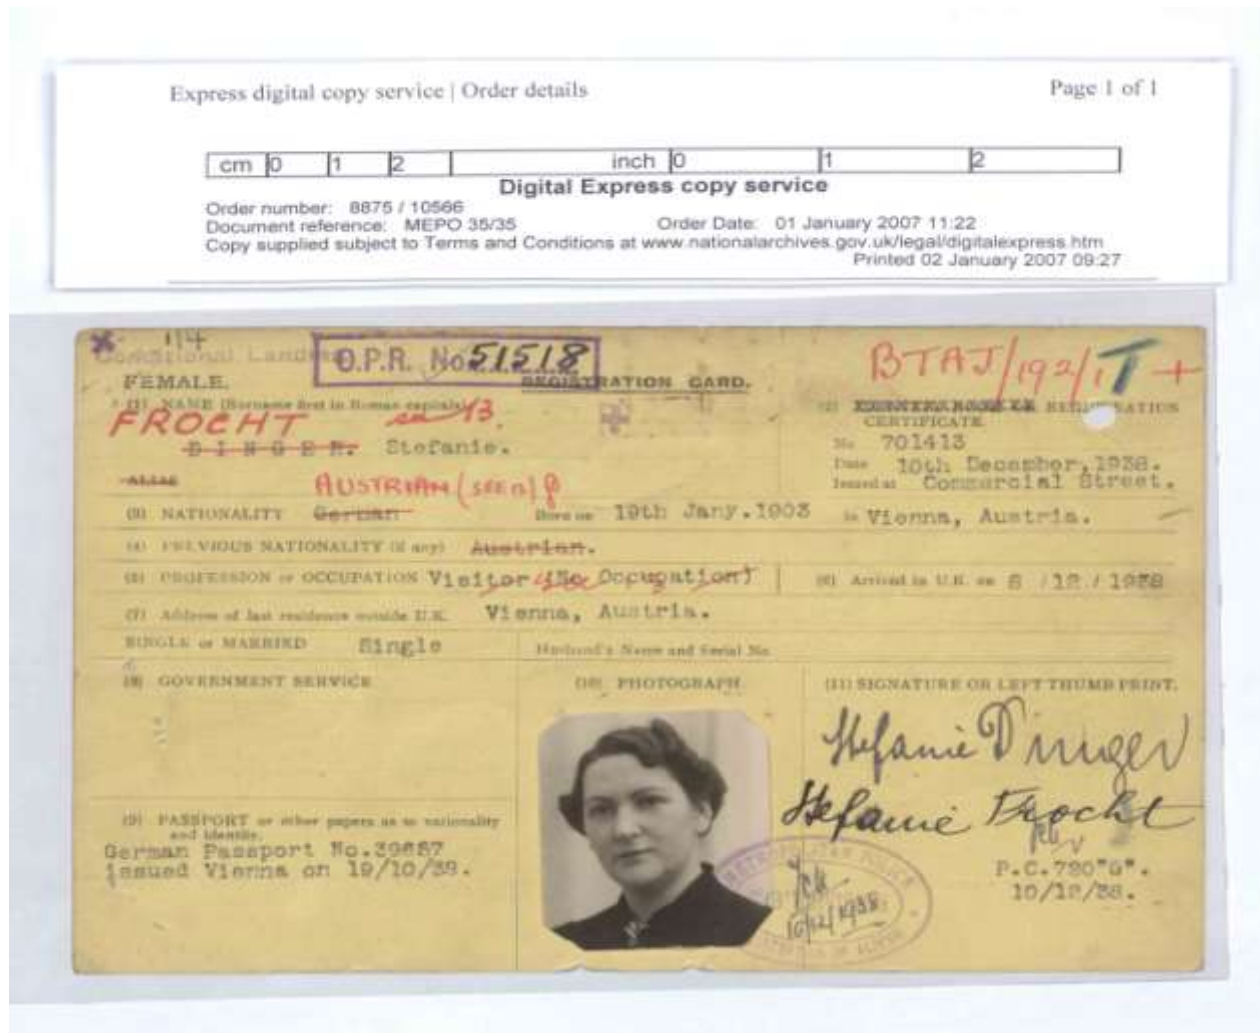 Express digital copy service | Order details
Page 1 of 1
cm 0 1 2 inch 0 1 2
Digital Express copy service
Order number: 8875 / 10566
Document reference: MEPO 35/35 Order Date: 01 January 2007 11:22
Copy supplied subject to Terms and Conditions at www.nationalarchives.gov.uk/legal/digitalexpress.htm
Printed 02 January 2007 09:27
114
Conditional Landing
O.P.R. No 51518
BTAJ/192/1 T +
FEMALE.
REGISTRATION CARD.
(1) NAME (Surname first in Roman capitals)
FROCHT
DINGER. Stefanie.
REGISTRATION
CERTIFICATE
No 701413
Date 10th December, 1938.
Issued at Commercial Street.
ALIAS
AUSTRIAN (SEEN)
(3) NATIONALITY German Born on 19th Jany. 1903 in Vienna, Austria.
(4) PREVIOUS NATIONALITY (if any) Austrian.
(5) PROFESSION or OCCUPATION Visitor (No Occupation)
(6) Arrived in U.K. on 8 /12 / 1938
(7) Address of last residence outside U.K. Vienna, Austria.
SINGLE or MARRIED Single Husband's Name and Serial No.
(8) GOVERNMENT SERVICE
(10) PHOTOGRAPH.
(11) SIGNATURE OR LEFT THUMB PRINT.
Stefanie Dinger
Stefanie Frocht
(9) PASSPORT or other papers as to nationality
and identity.
German Passport No.39657
issued Vienna on 19/10/38.
METROPOLITAN POLICE
10/12/1938
P.C.720"G".
10/12/38.